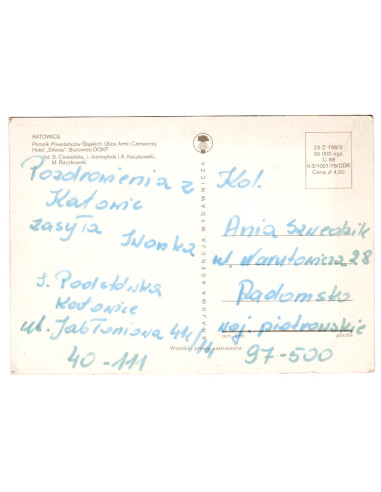 KATOWICE
Pomnik Powstańców Śląskich. Ulica Armii Czerwonej
Hotel „Silesia". Biurowiec DOKP
fot. S. Czewińska, J. Jastrzębski i A. Kaczkowski,
M. Raczkowski
Pozdrowienia z
Katowic
zasyła Iwonka
S. Podstówka
Katowice
ul. Jabłoniowa 44c/11
40-111
KRAJOWA AGENCJA WYDAWNICZA
23-Z-198/V
30 000 egz.
C 68
II-5/1001/78/DDR
Cena zł 4,50
Kol.
Ania Szwedzik
ul. Narutowicza 28
Radomsko
woj piotrowskie
97-500
poczta
Wszelkie prawa zastrzeżone